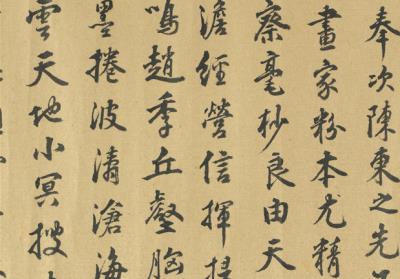 奉次陳東之先
畫家粉本尤精
察毫杪良由天
澹經營信揮
鳴趙季丘壑胸
墨捲波濤滄海
雲天地小冥搜